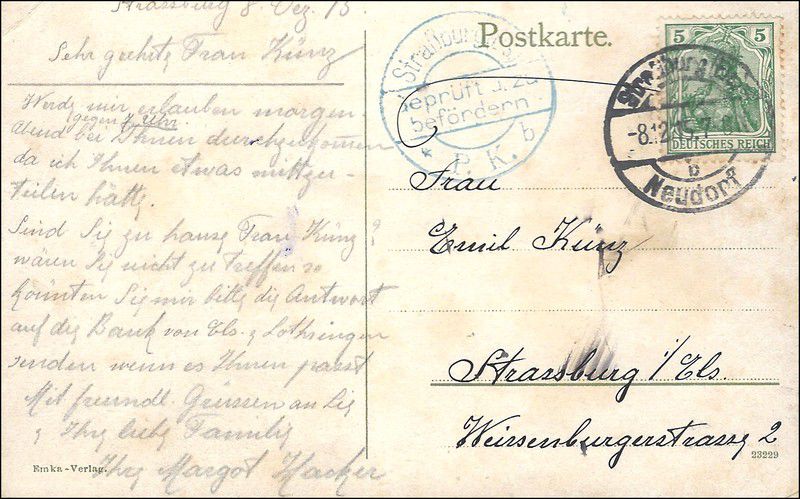 Strassburg 8. Dez. 15
Sehr geehrte Frau Künz
Werde mir erlauben morgen
Abend gegen 7 Uhr bei Ihnen durchzukommen
da ich Ihnen etwas mitzu-
teilen hätte.
Sind Sie zu hause Frau Künz?
wären Sie nicht zu treffen so
könnten Sie mir bitte die Antwort
auf die Bank von Els. & Lothringen
senden wenn es Ihnen passt
Mit freundl. Grüssen an Sie
& Ihre liebe Familie
Ihre Margot Hacker
Emka-Verlag.
Postkarte.
Straßburg
Geprüft u. zu
befördern
* P. K. b
5 5
DEUTSCHES REICH
-8.12.15.7
b
Neudorf
Frau
Emil Künz
Strassburg i/Els.
Weissenburgerstrasse 2
23229